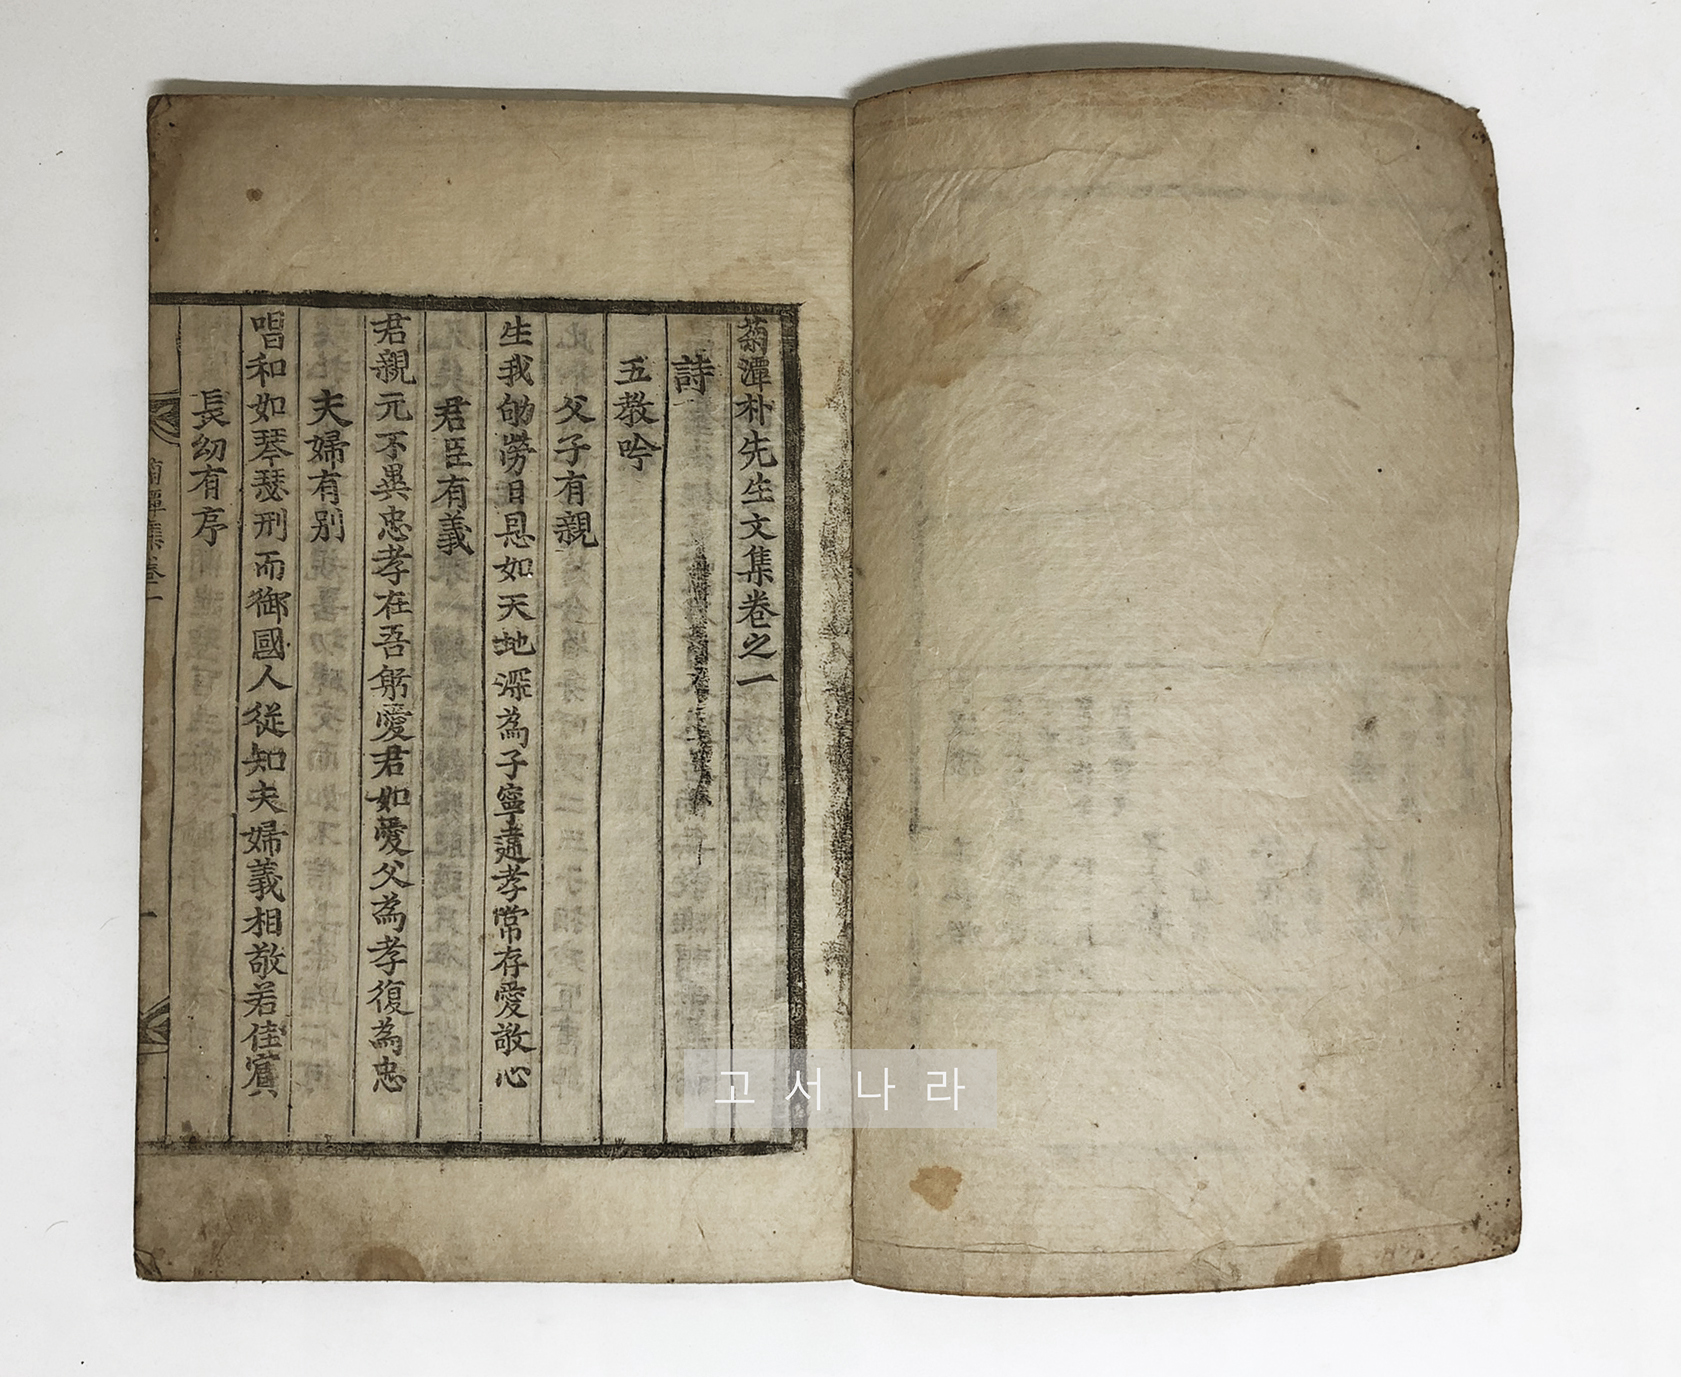 菊潭朴先生文集卷之一
詩
五教吟
父子有親
生我劬勞日恩如天地深為子寧違孝常存愛敬心
君臣有義
君親元不異忠孝在吾躬愛君如愛父為孝復為忠
夫婦有別
唱和如琴瑟刑而御國人從知夫婦義相敬若佳賓
長幼有序
菊潭集卷一
一
고서나라